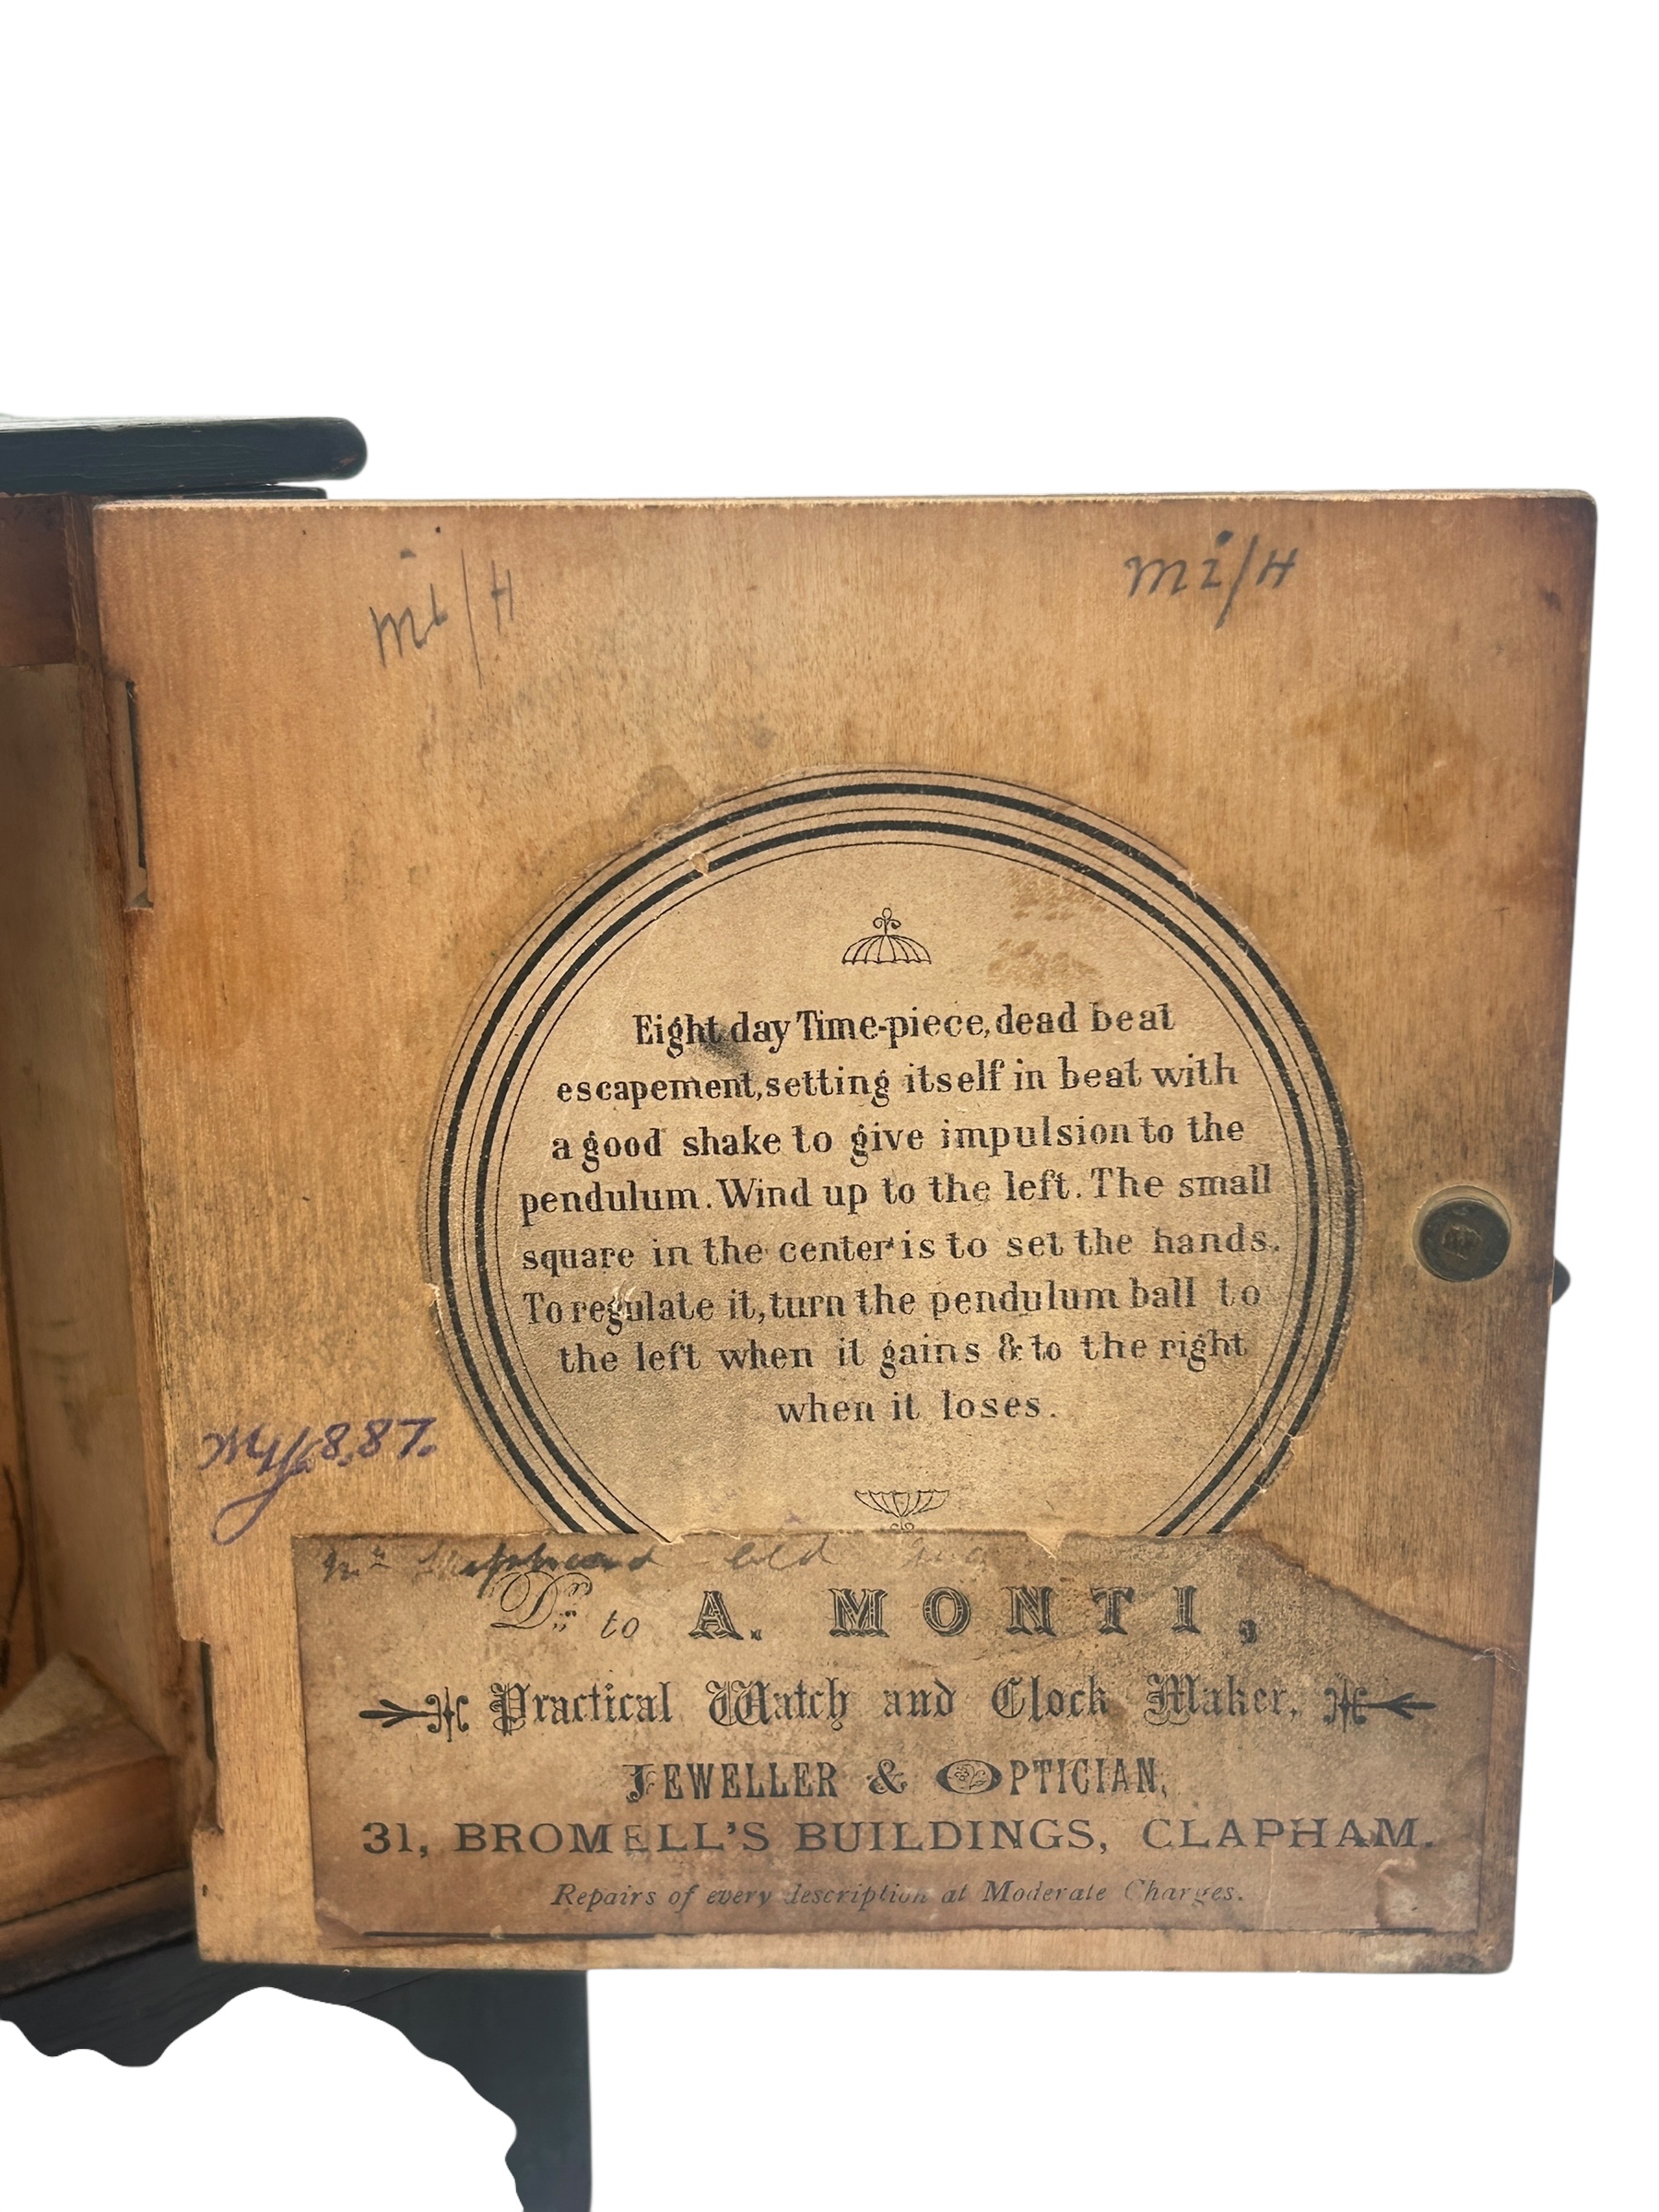 mi/H
mi/H
Eight day Time-piece, dead beat
escapement, setting itself in beat with
a good shake to give impulsion to the
pendulum. Wind up to the left. The small
square in the center is to set the hands.
To regulate it, turn the pendulum ball to
the left when it gains & to the right
when it loses.
1887
Mr
Dr. to A. MONTI,
Practical Watch and Clock Maker,
JEWELLER & OPTICIAN,
31, BROMELL'S BUILDINGS, CLAPHAM.
Repairs of every description at Moderate Charges.